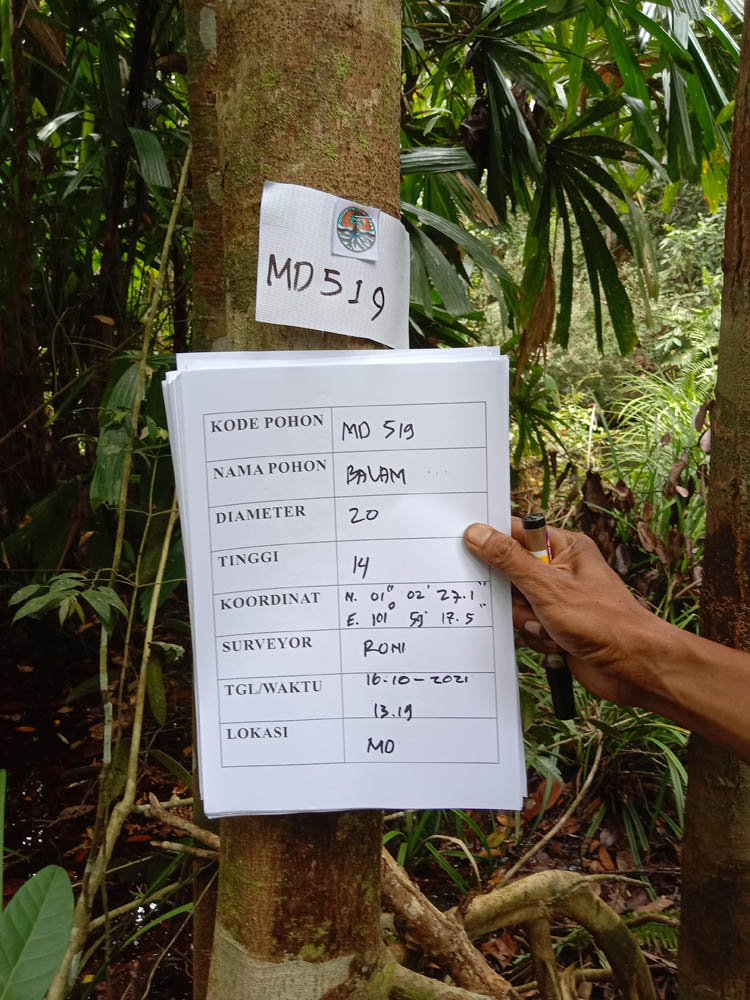 MD 519
KODE POHON MD 519
NAMA POHON BALAM
DIAMETER 20
TINGGI 14
KOORDINAT N. 01" 02' 27.1"
E. 101° 59' 17.5"
SURVEYOR RONI
TGL/WAKTU 16-10-2021
13.19
LOKASI MD